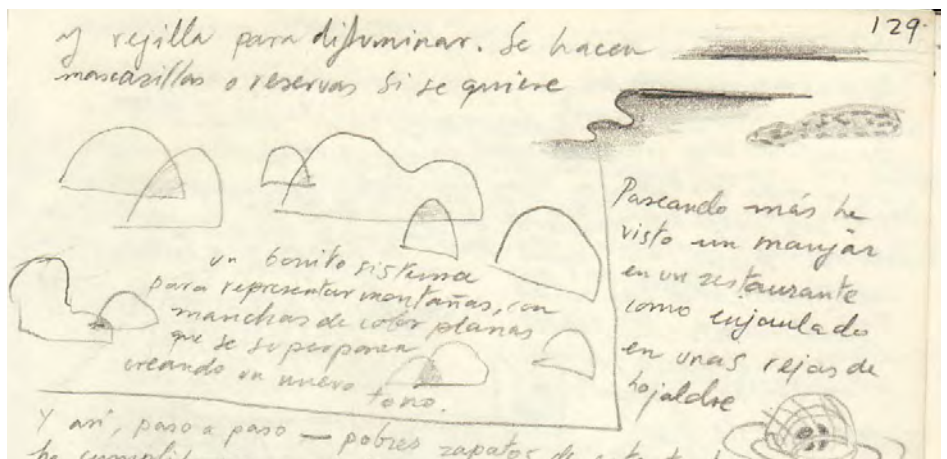 129.
y rejilla para difuminar. Se hacen
mascarillas o reservas si se quiere
un bonito sistema
para representar montañas, con
manchas de color planas
que se superponen
creando un nuevo
tono.
Paseando más he
visto un manjar
en un restaurante
como enjaulado
en unas rejas de
hojaldre
Y así, paso a paso — pobres zapatos de
he